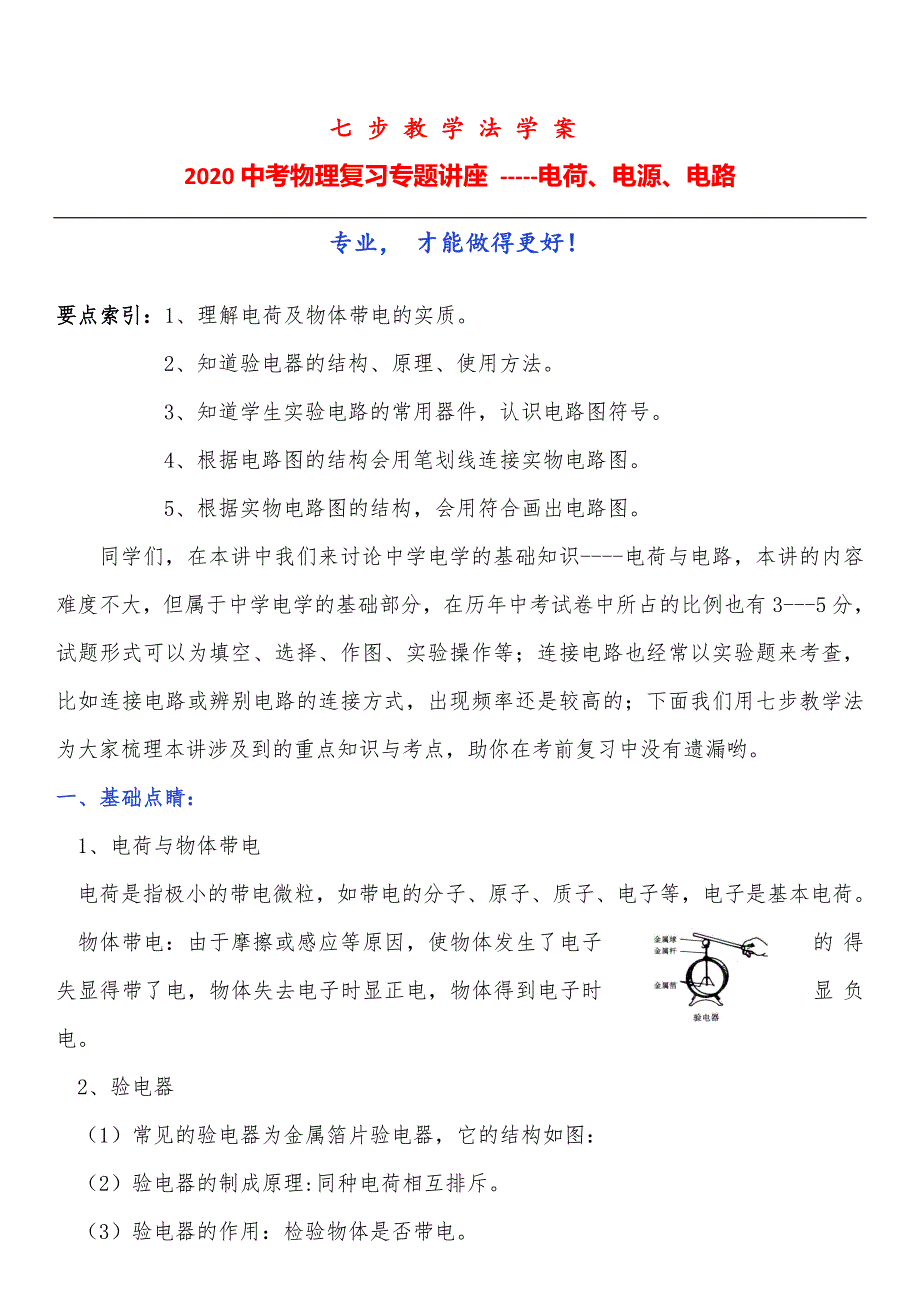 七 步 教 学 法 学 案
2020 中考物理复习专题讲座 -----电荷、电源、电路
专业， 才能做得更好！
要点索引：1、理解电荷及物体带电的实质。
2、知道验电器的结构、原理、使用方法。
3、知道学生实验电路的常用器件，认识电路图符号。
4、根据电路图的结构会用笔划线连接实物电路图。
5、根据实物电路图的结构，会用符合画出电路图。
同学们，在本讲中我们来讨论中学电学的基础知识----电荷与电路，本讲的内容
难度不大，但属于中学电学的基础部分，在历年中考试卷中所占的比例也有 3---5 分，
试题形式可以为填空、选择、作图、实验操作等；连接电路也经常以实验题来考查，
比如连接电路或辨别电路的连接方式，出现频率还是较高的；下面我们用七步教学法
为大家梳理本讲涉及到的重点知识与考点，助你在考前复习中没有遗漏哟。
一、基础点睛：
1、电荷与物体带电
电荷是指极小的带电微粒，如带电的分子、原子、质子、电子等，电子是基本电荷。
物体带电：由于摩擦或感应等原因，使物体发生了电子 的 得
失显得带了电，物体失去电子时显正电，物体得到电子时 显 负
电。
金属球
金属杆
金属箔
验电器
2、验电器
（1）常见的验电器为金属箔片验电器，它的结构如图：
（2）验电器的制成原理:同种电荷相互排斥。
（3）验电器的作用：检验物体是否带电。